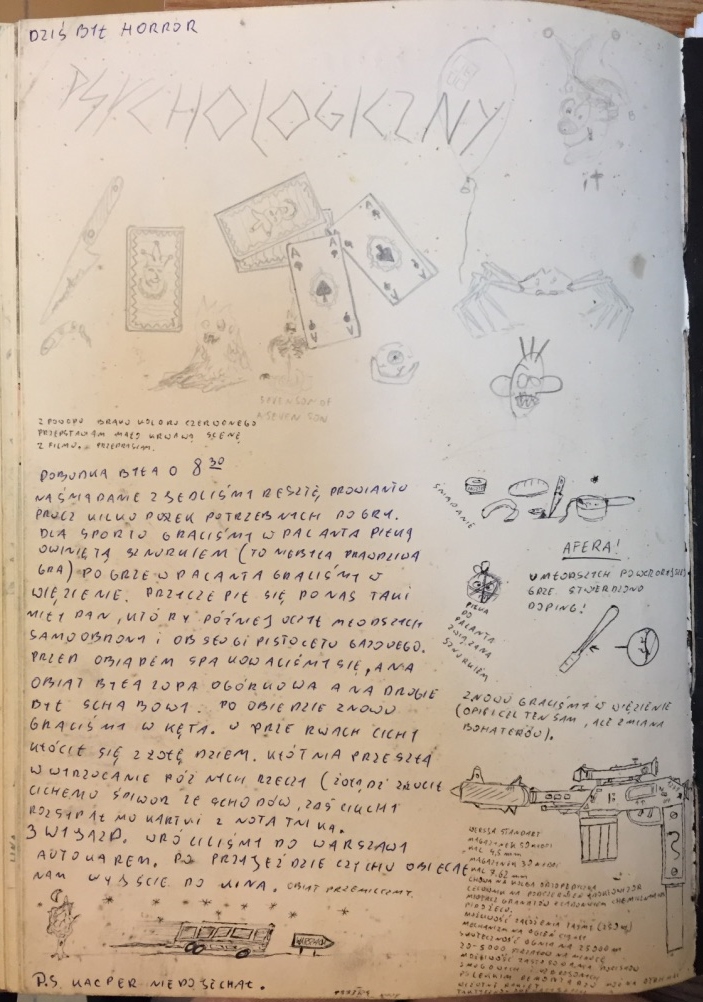 DZIŚ BYŁ HORROR
PSYCHOLOGICZNY
A
A
A
A
SEVENSON OF
A SEVEN SON
Z POWODU BRAKU KOLORU CZERWONEGO
PRZEDSTAWIAM MAŁO KRWAWĄ SCENĘ
Z FILMU. PRZEPRASZAM.
POBUDKA BYŁA O 8 30
NA ŚNIADANIE ZJEDLIŚMY RESZTĘ PROWIANTU
PRÓCZ KILKU POTRZEBNYCH DO GRY.
DLA SPORTU GRALIŚMY W PALANTA PIŁKĄ
OWINIĘTĄ SZNURKIEM (TO NIEBYŁA PRAWDZIWA
GRA) PO GRZE W PALANTA GRALIŚMY W
WIĘZIENIE. PRZYCZEPIŁ SIĘ DO NAS TAKI
MIŁY PAN, KTÓRY PÓŹNIEJ UCZYŁ MŁODSZYCH
SAMOOBRONY I OBSŁUGI PISTOLETU GAZOWEGO.
PRZED OBIADEM SPAKOWALIŚMY SIĘ, A NA
OBIAT BYŁA ZUPA OGÓRKOWA A NA DRUGIE
BYŁ SCHABOWY. PO OBIEDZIE ZNOWU
GRALIŚMY W KĘTA. W PRZERWACH CICHY
KŁÓCIŁ SIĘ Z ŻOŁĘDZIEM. KŁÓTNIA PRZESZŁA
W WYRZUCANIE RÓŻNYCH RZECZY (ŻOŁĄDŹ ZRZUCIŁ
CICHEMU ŚPIWÓR ZE SCHODÓW, ZAŚ CICHY
ROZSYPAŁ MU KARTKI Z NOTATNIKA.
WYJAZD. WRÓCILIŚMY DO WARSZAWY
AUTOKAREM. PO PRZYJEŹDZIE CZYCHU OBIECAŁ
NAM WYJŚCIE DO KINA. OBIAT PRZEMILCZMY.
P.S. KACPER NIEDOJECHAŁ.
ŚNIADANIE
AFERA!
U MŁODSZYCH PO WCZORAJSZEJ
GRZE STWIERDZONO
DOPING!
PIŁKA
DO
PALANTA
ZWIĄZANA
SZNURKIEM
ZNOWU GRALIŚMY W WIĘZIENIE
(OPIS CEL TEN SAM, ALE ZMIANA
BOHATERÓW).
WERSJA STANDART
MAGAZYNEK
KAL 4,5 mm
MAGAZYNEK
KAL 7,62 mm
MOŻLIWOŚĆ
MECHANIZM NA OGIEŃ CIĄGŁY
SKUTECZNOŚĆ OGNIA NA 25000 m
MOŻLIWOŚĆ